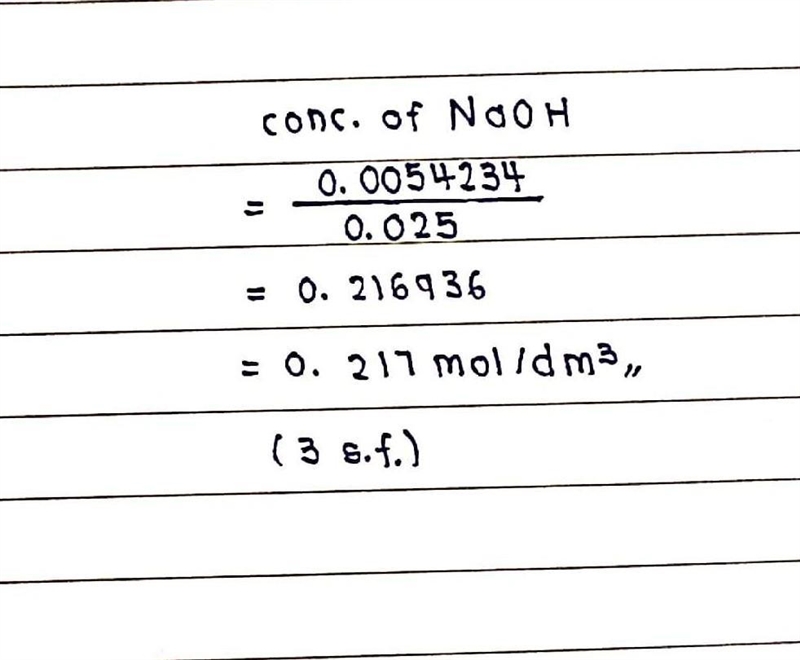 conc. of NaOH
= 0.0054234
0.025
= 0.216936
= 0.217 mol/dm³,,
(3 s.f.)